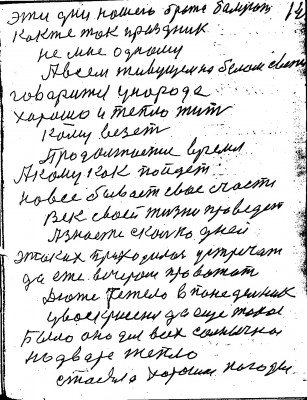 эти дни нашего брата балуют 12
как те ток праздник
не мне одному
А всем живущем на белом свети
говарили унорода
хорошо и тепло жит
кому везет
Продолжается время
А кому как пойдет
на все бывает свое счасти
Век своей жизни проведет
А знаете сколко дней
этаких приходилос встречат
да еже вечером проважат
тежело в панеделник
увоскрисене да още такое
было оно для всех солнечное
на дваре тепло
стаяла хорошие погоды